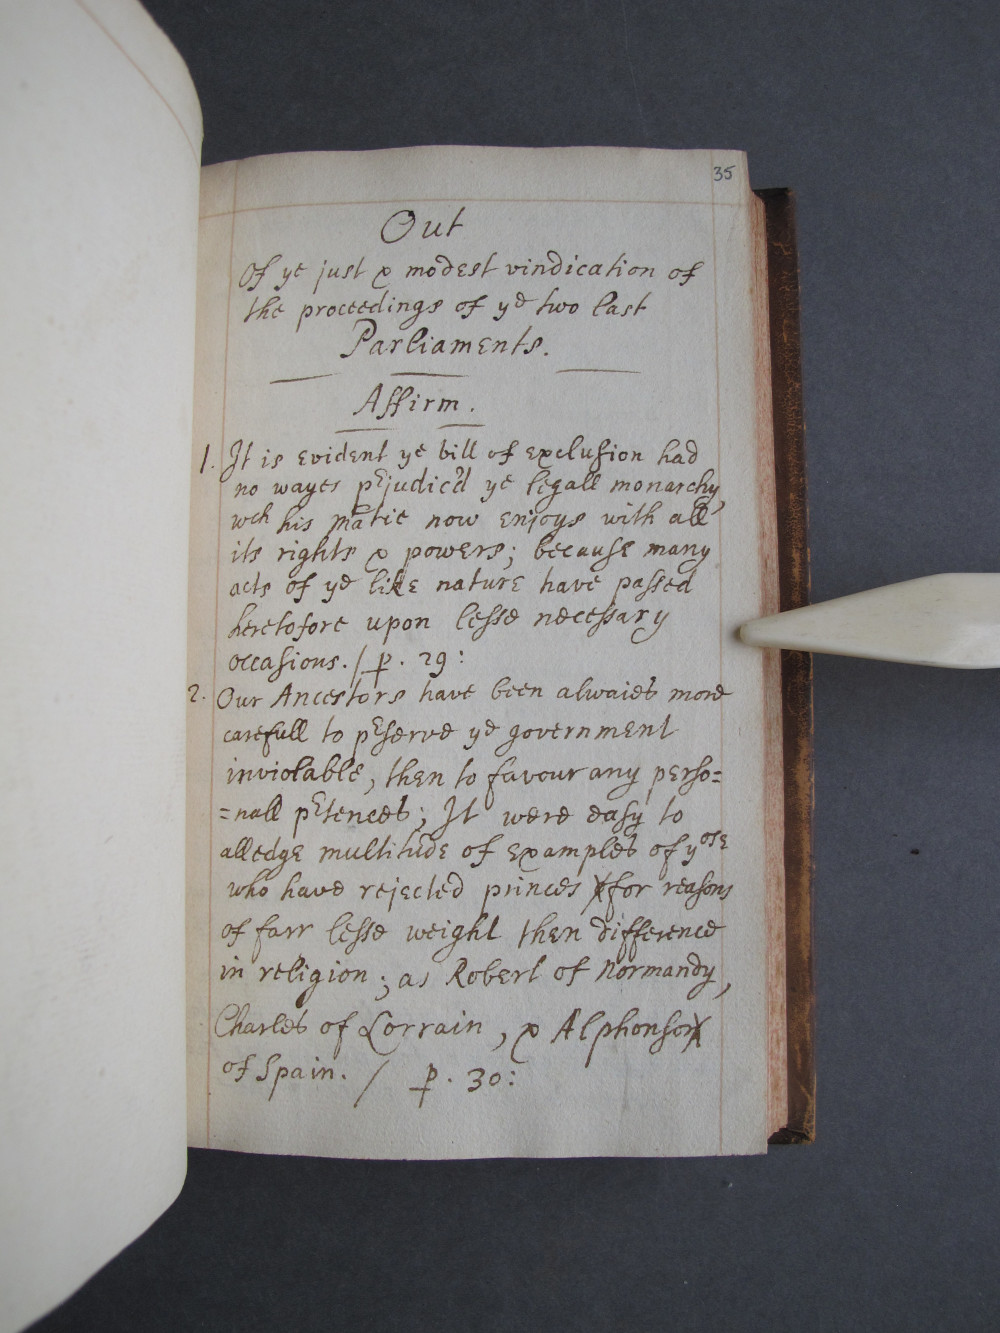 35
Out
Of ye just & modest vindication of
the proceedings of ye two last
Parliaments.
Affirm.
1. It is evident ye bill of exclusion had
no wayes prejudic'd ye legall monarchy,
wch his matie now enjoys with all
its rights & powers; because many
acts of ye like nature have passed
heretofore upon lesse necessary
occasions. / p. 29:
2. Our Ancestors have been alwaies more
carefull to preserve ye government
inviolable, then to favour any perso=
=nall pretences; It were easy to
alledge multitude of examples of yose
who have rejected princes for reasons
of farr lesse weight then difference
in religion; as Robert of Normandy,
Charles of Lorrain, & Alphonso
of Spain. / p. 30: